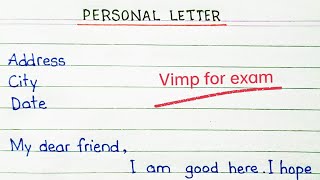 PERSONAL LETTER
Address
City
Vimp for exam
Date
My dear friend,
I am good here. I hope